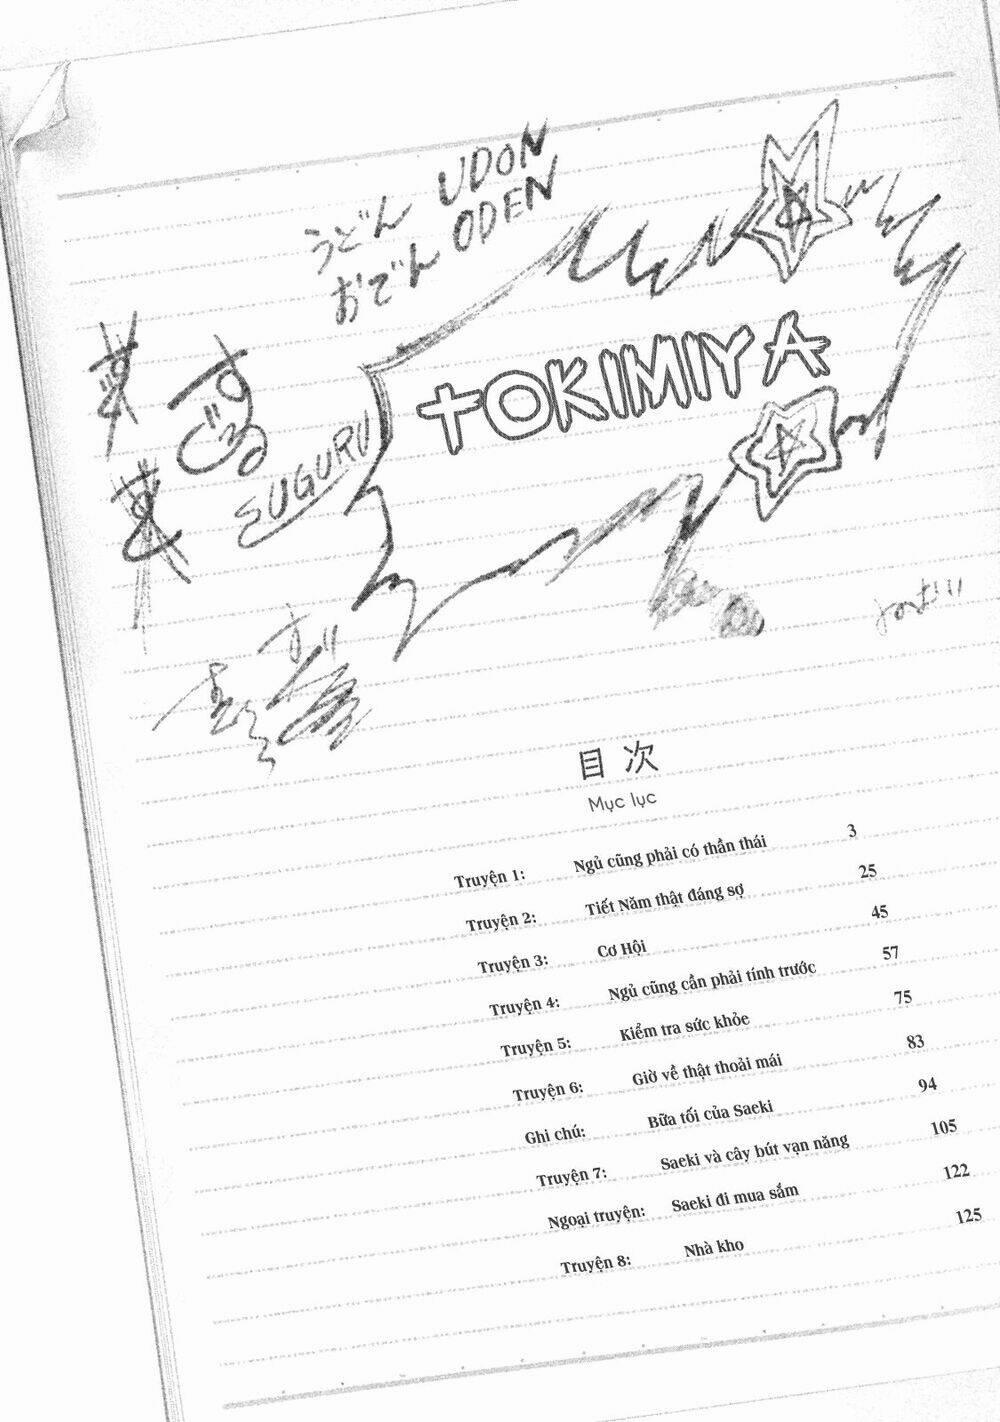 うどん UDON
おでん ODEN
TOKIMIYA
すぐる
SUGURU
目次
Mục lục
Truyện 1: Ngủ cũng phải có thần thái 3
Truyện 2: Tiết Năm thật đáng sợ 25
Truyện 3: Cơ Hội 45
Truyện 4: Ngủ cũng cần phải tính trước 57
Truyện 5: Kiểm tra sức khỏe 75
Truyện 6: Giờ về thật thoải mái 83
Ghi chú: Bữa tối của Saeki 94
Truyện 7: Saeki và cây bút vạn năng 105
Ngoại truyện: Saeki đi mua sắm 122
Truyện 8: Nhà kho 125